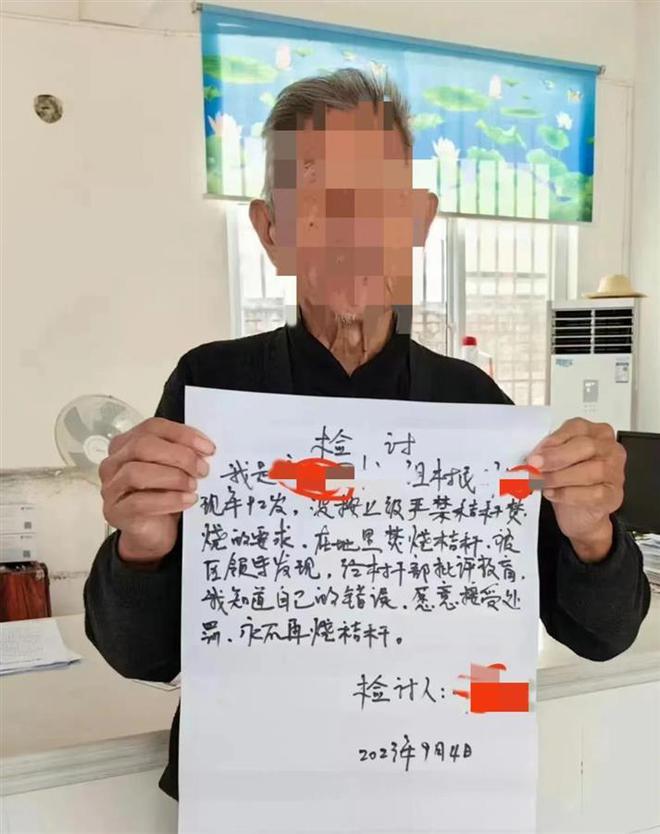 检讨
我是 村民:
现年92岁，没按上级严禁秸秆焚
烧的要求，在地里焚烧秸秆，被
区领导发现，经村干部批评教育，
我知道自己的错误，愿意接受处
罚，永不再烧秸秆。
检讨人：
2023年9月4日